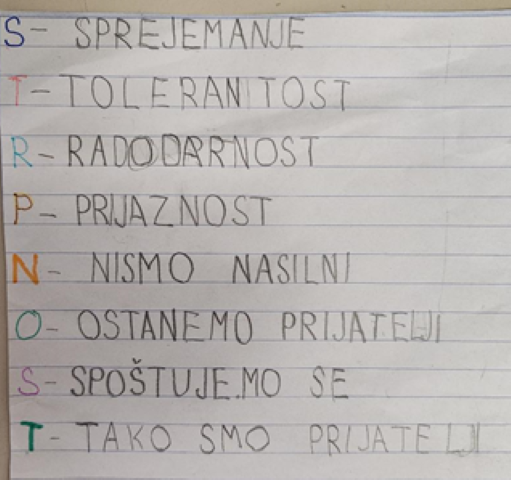 S- SPREJEMANJE
T- TOLERANITOST
R- RADODARNOST
P- PRIJAZNOST
N- NISMO NASILNI
O- OSTANEMO PRIJATELJI
S- SPOŠTUJEMO SE
T- TAKO SMO PRIJATELJI